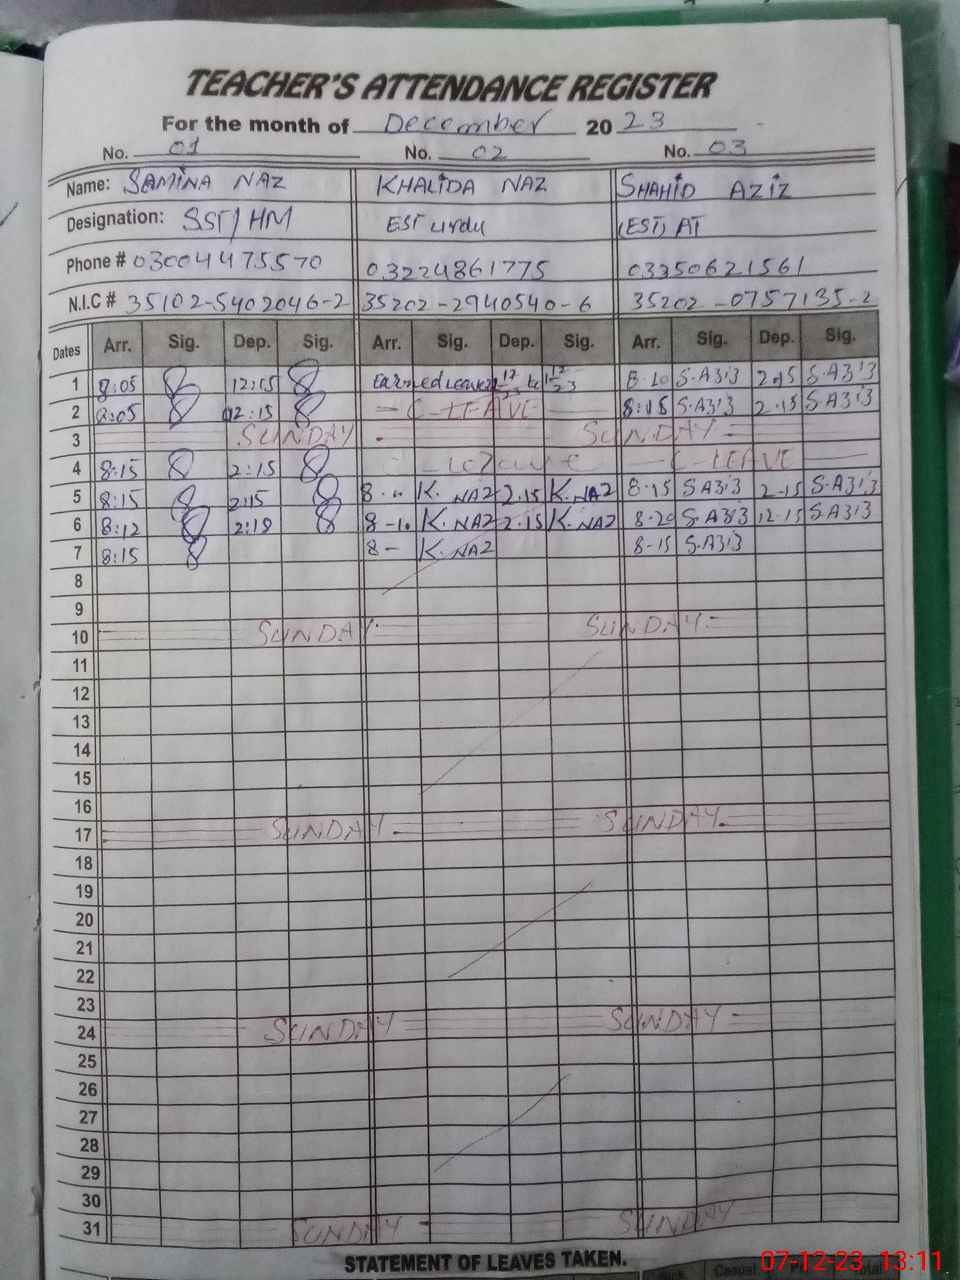 TEACHER'S ATTENDANCE REGISTER
For the month of December 2023
No. 01 No. 02 No. 03
Name: SAMINA NAZ KHALIDA NAZ SHAHID AZIZ
Designation: SST/HM EST urdu (EST) AT
Phone # 03004475570 03224861775 03350621561
N.I.C # 35102-5402046-2 35202-2940540-6 35202-0757135-2
Dates Arr. Sig. Dep. Sig. Arr. Sig. Dep. Sig. Arr. Sig. Dep. Sig.
1 8:05 12:15 Earned leave 8-10 S.A313 2-15 S.A313
2 8:05 12:15 - C-LEAVE - 8:15 S.A313 2-15 S.A313
3 SUNDAY - SUNDAY -
4 8:15 2:15 - C-LEAVE -
5 8:15 2:15 8- K.NAZ 2.15 K.NAZ 8-15 SA313 2-15 S.A313
6 8:12 2:18 8-10 K.NAZ 2.15 K.NAZ 8-20 S.A313 12-15 S.A313
7 8:15 8- K.NAZ 8-15 S.A313
8
9
10 SUNDAY- SUNDAY-
11
12
13
14
15
16
17 SUNDAY- SUNDAY-
18
19
20
21
22
23
24 SUNDAY SUNDAY-
25
26
27
28
29
30
31 SUNDAY- SUNDAY
STATEMENT OF LEAVES TAKEN.
Casual Total
07-12-23, 13:11